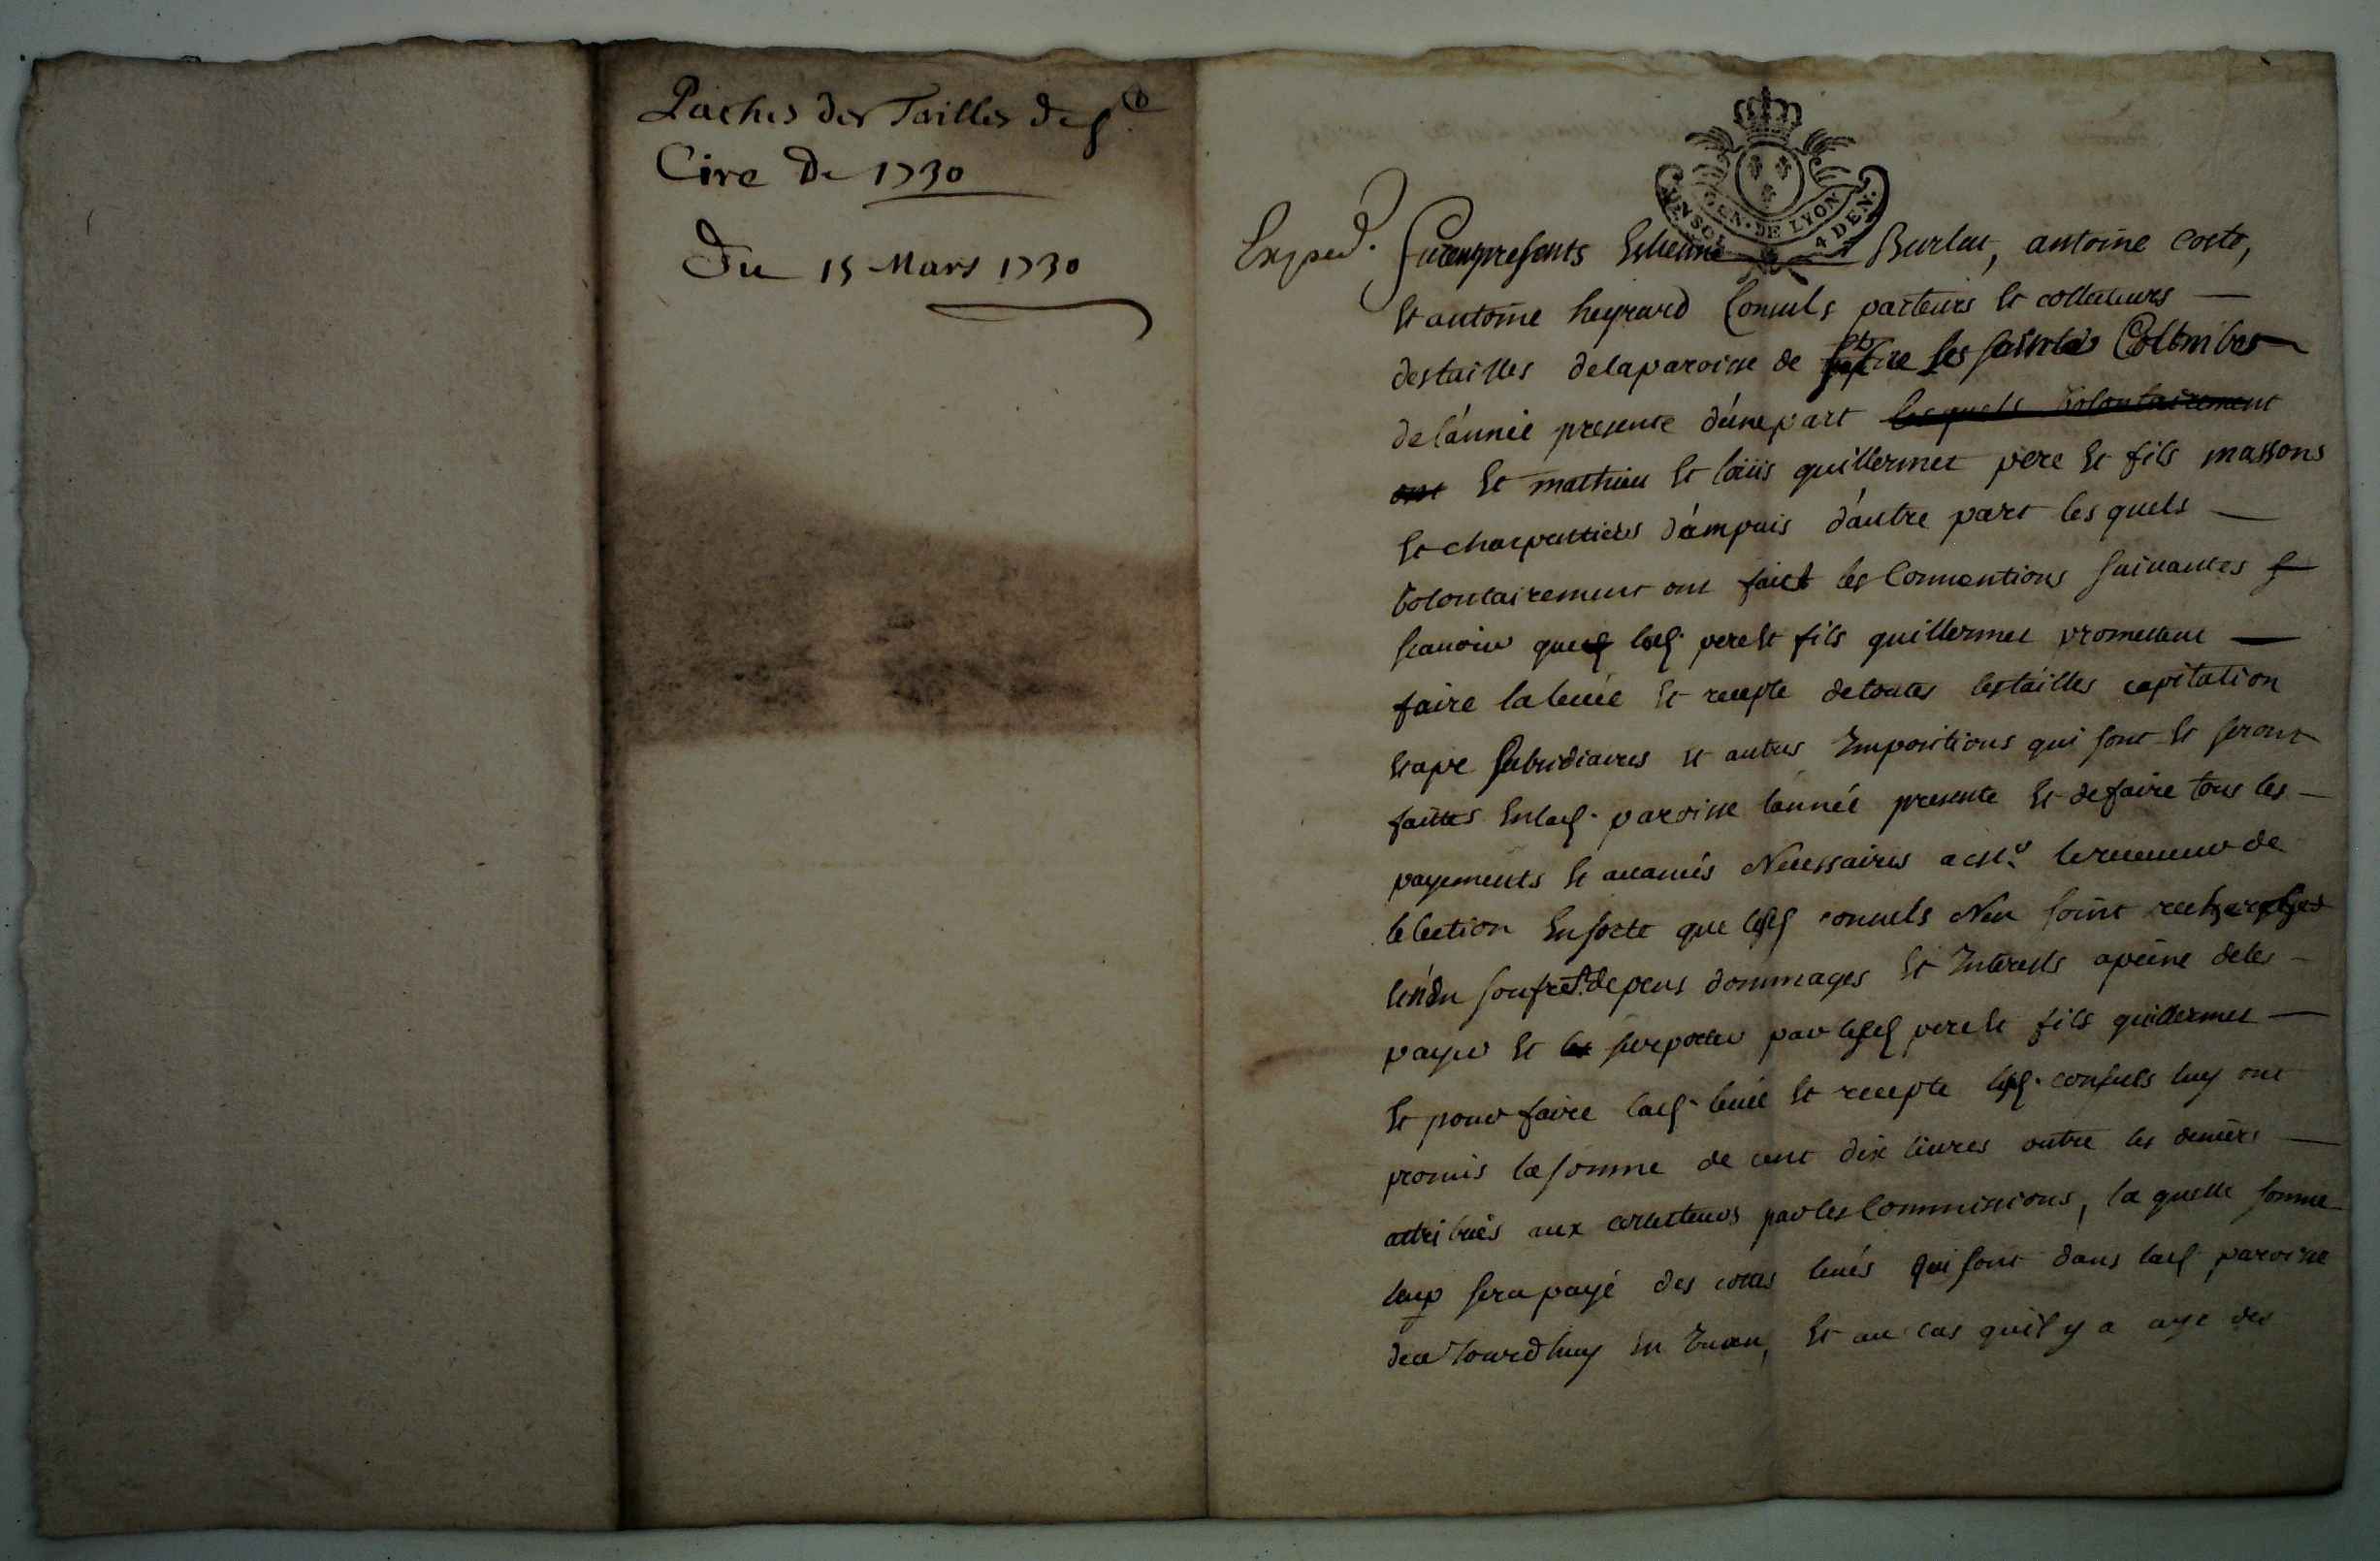 Paches des Tailles de St
Cire De 1730
Du 15 Mars 1730
GEN. DE LYON.
UN SOL 4 DEN.
Exped. Furent presents Estienne Burlat, antoine coste,
Et antoine heyrard Consuls parteurs Et collecteurs
des tailles de la paroisse de St Cire les sainte Collombes
de l'année presente d'une part lesquels volontairement
ont Et mathieu Et loüis guillermet pere Et fils massons
Et charpattiers d'ampuis d'autre part les quels
volontairement ont faict les Conventions suivantes
scavoir que lesd. pere Et fils guillermet promettent
faire la levée Et recepte de toutes les tailles capitation
Etape subsidiaires Et autres Impositions qui sont Et seront
faittes En lad. paroisse lannée presente Et de faire tous les
payements Et Necessaires a de
lelection En sorte que lesd consuls Nen soint recherches
depens dommages Et Interests apeine de les
payer Et suporter par lesd pere Et fils guillermet
Et pour faire lad. levée Et recepte lesd. consuls luy ont
promis la somme de cent dix livres outre les deniers
attribués aux collecteurs par les Commissions, la quelle somme
sera payé des levés qui sont dans lad paroisse
dea Jourdhuy En Et au cas quil y a aye des